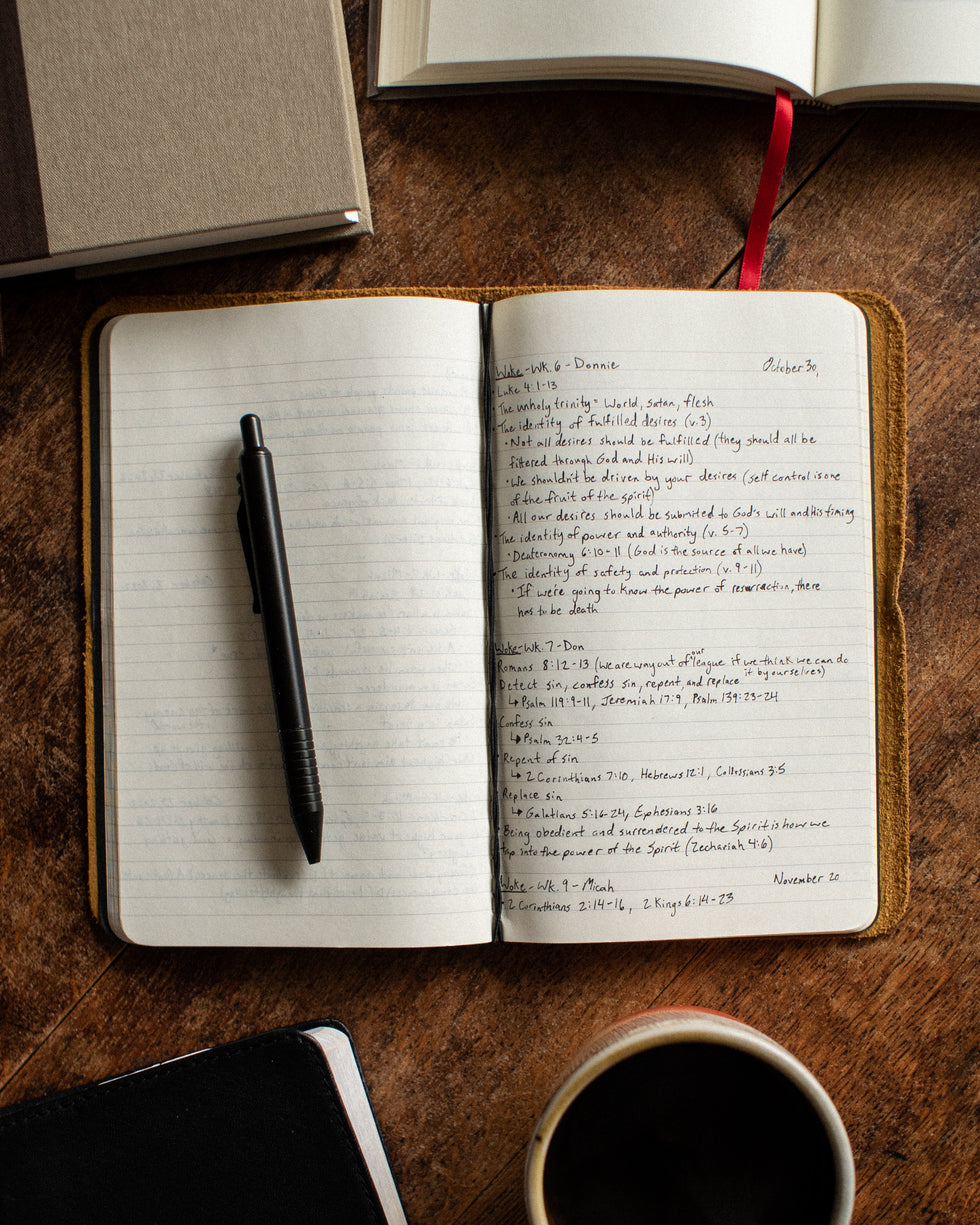 Woke - Wk. 6 - Donnie October 30,
• Luke 4:1-13
• The unholy trinity = World, Satan, flesh
• The identity of fulfilled desires (v.3)
• Not all desires should be fulfilled (they should all be
filtered through God and His will)
• We shouldn't be driven by your desires (self control is one
of the fruit of the spirit)
• All our desires should be submited to God's will and His timing
• The identity of power and authority (v. 5-7)
• Deuteronomy 6:10-11 (God is the source of all we have)
• The identity of safety and protection (v. 9-11)
• If we're going to know the power of resurraction, there
has to be death
Woke - Wk. 7 - Don
Romans 8:12-13 (we are way out of our league if we think we can do
it by ourselves)
Detect sin, confess sin, repent, and replace
↳ Psalm 119:9-11, Jeremiah 17:9, Psalm 139:23-24
Confess sin
↳ Psalm 32:4-5
Repent of sin
↳ 2 Corinthians 7:10, Hebrews 12:1, Collossians 3:5
Replace sin
↳ Galatians 5:16-24, Ephesians 3:16
• Being obedient and surrendered to the Spirit is how we
tap into the power of the Spirit (Zechariah 4:6)
Woke - Wk. 9 - Micah November 20
• 2 Corinthians 2:14-16, 2 Kings 6:14-23